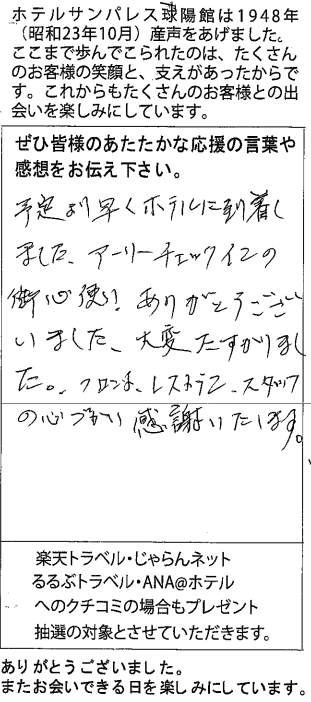 ホテルサンパレス球陽館は1948年
（昭和23年10月）産声をあげました。
ここまで歩んでこられたのは、たくさん
のお客様の笑顔と、支えがあったからで
す。これからもたくさんのお客様との出
会いを楽しみにしています。
ぜひ皆様のあたたかな応援の言葉や
感想をお伝え下さい。
予定より早くホテルに到着し
ました、アーリーチェックインの
御心使い! ありがとうござ
いました、大変たすかりまし
た。、フロント、レストラン、スタッフ
の心づかい感謝いたします。
楽天トラベル・じゃらんネット
るるぶトラベル・ANA@ホテル
へのクチコミの場合もプレゼント
抽選の対象とさせていただきます。
ありがとうございました。
またお会いできる日を楽しみにしています。